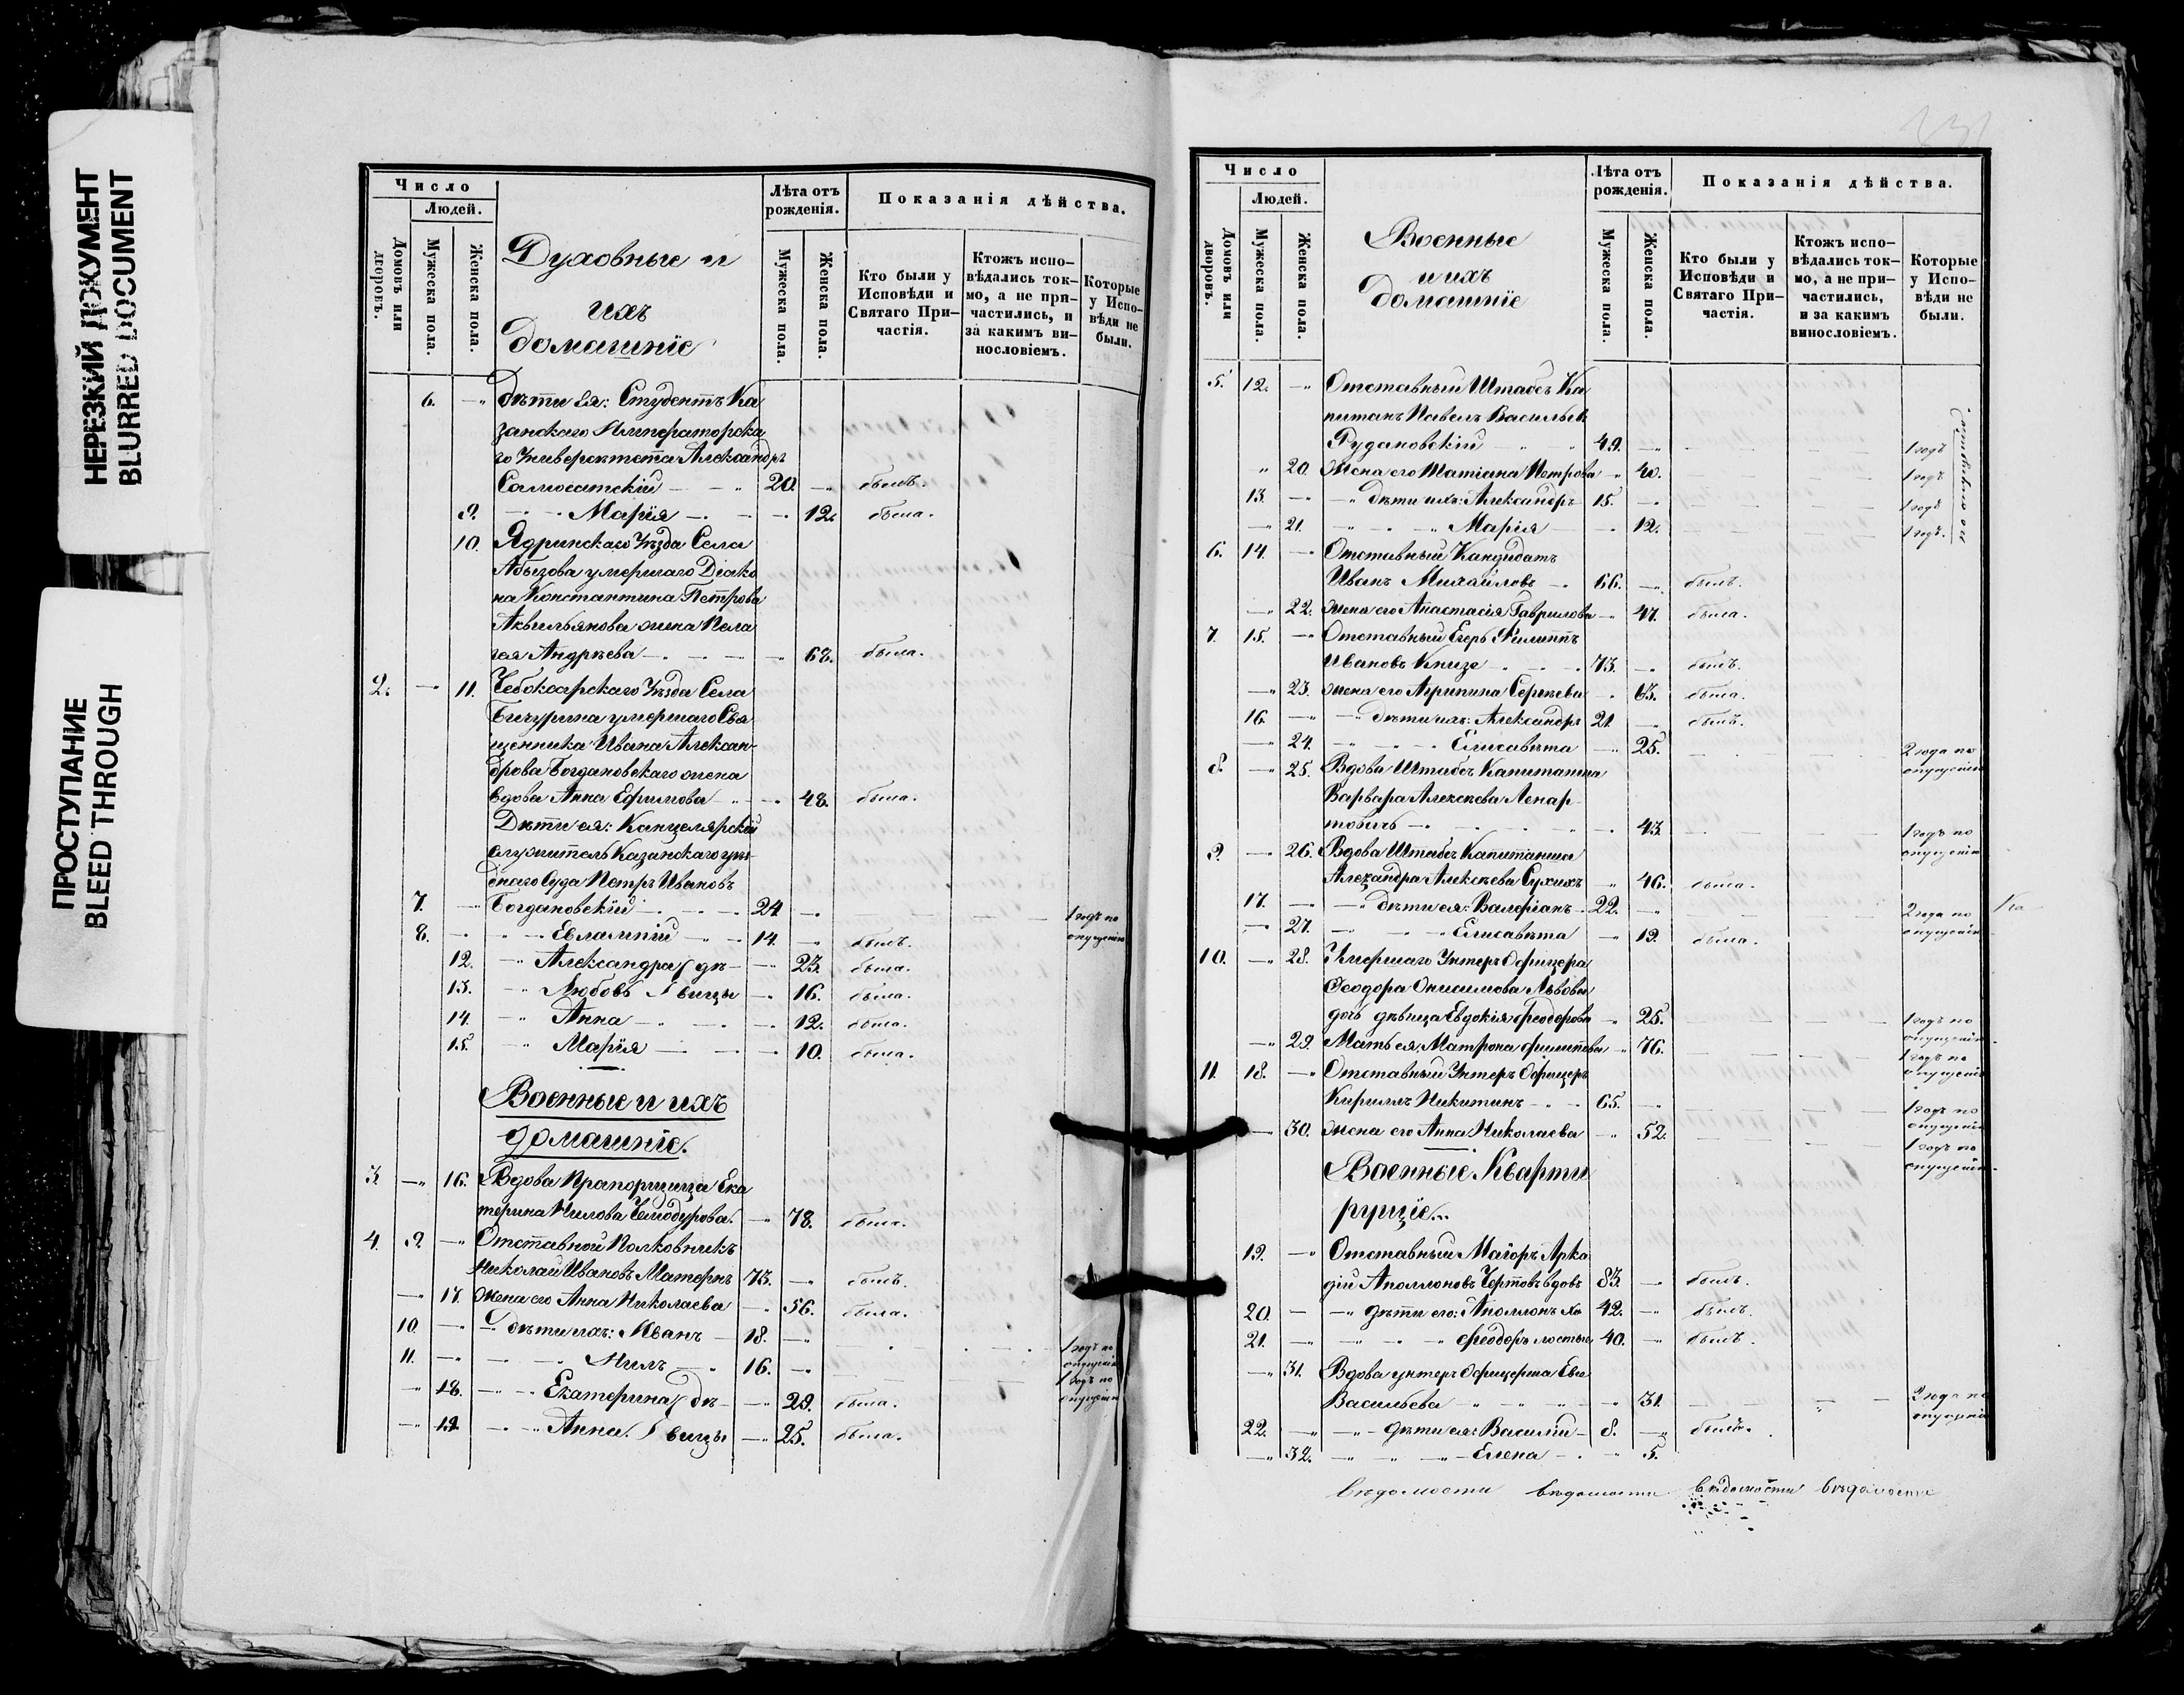 НЕРЕЗКИЙ ДОКУМЕНТ
BLURRED DOCUMENT
ПРОСТУПАНИЕ
BLEED THROUGH
Число
Людей.
Домовъ или дворовъ.
Мужеска пола.
Женска пола.
Духовные и
ихъ
домашніе
Лѣта отъ рожденія.
Мужеска пола.
Женска пола.
Показанія дѣйства.
Кто были у Исповѣди и Святаго При-частія.
Ктожъ испо-вѣдались ток-мо, а не при-частились, и за какимъ ви-нословіемъ.
Которые у Испо-вѣди не были.
6. —" Дѣти ея: Студентъ Ка
занскаго Императорска
го Университета Александръ
Самосатскій — — " 20. —" былъ.
9. — " Марія — — — 12. была.
10. Ядринскаго Уѣзда Села
Абызова умершаго Діако
на Константина Петрова
Аквильянова жена Пела
гея Андреева — — — 68. была.
2. —" 11. Чебоксарскаго Уѣзда Села
Бичурина умершаго Свя
щенника Ивана Алексан-
дрова Богдановскаго жена
вдова Анна Ефимова — " — 48. была.
Дѣти ея: Канцелярскій
служитель Казанскаго уѣз-
днаго Суда Петръ Ивановъ
7. —" Богдановскій — — — 24 —" — — 1 годъ по
опущенію
8. —" — Евлампій — — 14. —" былъ.
12. —" Александра дѣ- — 23. была.
13. —" Любовь вицы — 16. была.
14. —" Анна — — — 12. была.
15. —" Марія — — — 10. была.
Военные и ихъ
домашніе.
3. —" 16. Вдова Прапорщица Ека
терина Нилова Чемодурова. —" 78. была.
4. 9. —" Отставной Полковникъ
Николай Ивановъ Матернъ 73. —" былъ.
—" 17. Жена его Анна Николаева —" 56. была.
10. —" — Дѣти ихъ: Иванъ — 18. —" 1 годъ по
опущенію
11. —" — — Нилъ — 16. —" 1 годъ по
опущенію
—" 18. — " Екатерина дѣ- —" 29. была.
—" 19. — " Анна. вицы —" 25. была.
Число
Людей.
Домовъ или дворовъ.
Мужеска пола.
Женска пола.
Военные
и ихъ
домашніе
Лѣта отъ рожденія.
Мужеска пола.
Женска пола.
Показанія дѣйства.
Кто были у Исповѣди и Святаго При-частія.
Ктожъ испо-вѣдались ток-мо, а не при-частились, и за какимъ винословіемъ.
Которые у Испо-вѣди не были.
5. 12. —" Отставный Штабсъ Ка
питанъ Павелъ Васильевъ
Рудановскій " " 49. —" — — — 1 годъ
" 20. Жена его Татіана Петрова " 40. — — — 1 годъ
13. —" —" дѣти ихъ: Александръ 15. —" — — — 1 годъ
—" 21. —" — " Марія — 12. — — — 1 годъ.
6. 14. —" Отставный Кандидатъ
Иванъ Михайловъ — 66. —" былъ.
—" 22. Жена его Анастасія Гаврилова —" 47. была.
7. 15. —" Отставный Егерь Филиппъ
Ивановъ Книзе — — 73. —" былъ.
—" 23. Жена его Агрипина Сергѣева — 63. была.
16. —" —" дѣти ихъ: Александръ 21. —" былъ.
—" 24. —" — — Елисавета —" 25. — — — 2 года по
опущенію
8. —" 25. Вдова Штабсъ Капитанша
Варвара Алексѣева Ленар-
товичь — — — — 43. — — — 1 годъ по
опущенію
9. —" 26. Вдова Штабсъ Капитанша
Александра Алексѣева Сухихъ " 46. была.
17. —" —" дѣти ея: Валеріанъ — 22. —" — — — 2 года по
опущенію
—" 27. —" — — Елисавета —" 19. была.
10. —" 28. Умершаго Унтеръ Офицера
Ѳеодора Онисимова Львова
дочь дѣвица Евдокія Ѳеодорова " 25. — — — 1 годъ по
опущенію
—" 29. Мать ея, Матрона Филиппова " 76. — — — 1 годъ по
опущенію
11. 18. —" Отставный Унтеръ Офицеръ
Кириллъ Никитинъ — " — 65. —" — — — 1 годъ по
опущенію
—" 30. Жена его Анна Николаева —" 52. — — — 1 годъ по
опущенію
Военные Кварти
рущіе.
19. —" Отставный Маіоръ Арка
дій Аполлоновъ Чертовъ вдовъ 83. —" былъ.
20. — —" дѣти его: Аполлонъ хо 42. —" былъ.
21. —" —" — " Ѳеодоръ лостые 40. —" былъ.
—" 31. Вдова унтеръ Офицерша Ева
Васильева " " " — " 31. — — " — 2 года по
опущенію
22. —" —" дѣти ея: Василій — 8. —" былъ.
—" 32. —" " —" Елена — — " 5.
вѣдомости вѣдомости вѣдомости вѣдомости